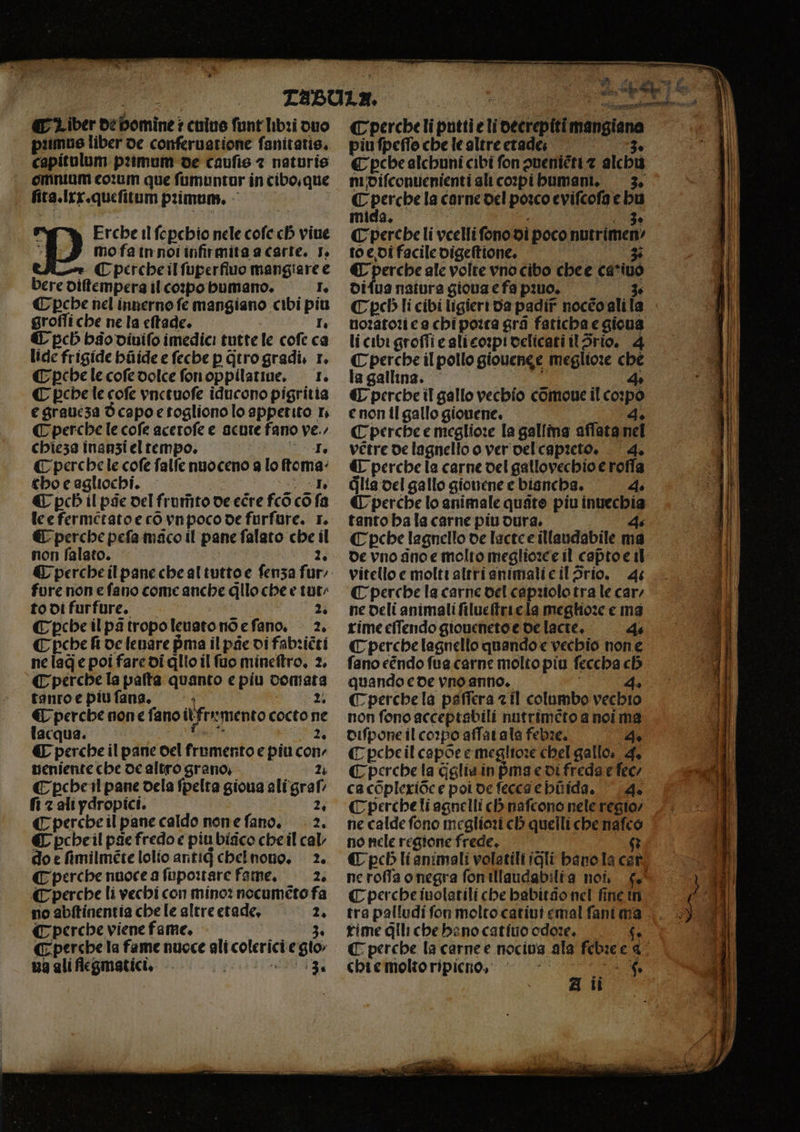 TABULA.
¶ Liber de homine ⁊ cuius sunt libri duo
primus liber de conseruatione sanitatis.
capitulum primum de causis ⁊ naturis
omnium eorum que sumuntur in cibo, que
sita. lxx. quesitum primum.
PErche il sopchio nele cose cħ viue
mo fa in noi infirmita a carte. 1.
¶ perche il superfluo mangiare e
bere distempera il corpo humano. 1.
¶ Pche nel inuerno se mangiano cibi piu
grossi che ne la estade. 1.
¶ pcħ hão diuiso i medici tutte le cose ca
lide frigide hũide e seche p q̃tro gradi. 1.
¶ pche le cose dolce son oppilatiue. 1.
¶ pche le cose vnctuose iducono pigritia
e graueza d̃ capo e togliono lo appetito 1.
¶ perche le cose acetose e acute fano ve-
chieza inanzi el tempo. 1.
¶ perche le cose salse nuoceno a lo stoma-
cho e agliochi. 1.
¶ pcħ il pãe del frum̃to de eẽre fcõ cõ sa
le e fermẽtato e cõ vn poco de furfure. 1.
¶ perche pesa mãco il pane salato che il
non salato. 2.
¶ perche il pane che al tutto e senza fur-
fure non e sano come anche q̃llo che e tut-
to di furfure. 2.
¶ pche il pã tropo leuato nõ e sano. 2.
¶ pche si de leuare p̃ma il pãe di fabricti
ne laq̃ e poi fare di q̃llo il suo minestro. 2.
¶ perche la pasta quanto e piu domata
tanto e piu sana. 2.
¶ perche non e sano il frumento cocto ne
lacqua. 2.
¶ perche il pane del frumento e piu con-
ueniente che de altro grano. 2.
¶ pche il pane dela spelta gioua ali gras-
si ⁊ ali ydropici. 2.
¶ perche il pane caldo non e sano. 2.
¶ pche il pãe fredo e piu biãco che il cal-
do e similmẽte lolio antiq̃ chel nouo. 2.
¶ perche nuoce a suportare fame. 2.
¶ perche li vechi con minor nocumẽto fa
no abstinentia che le altre etade. 2.
¶ perche viene fame. 3.
¶ perche la fame nuoce ali colerici e gio-
ua ali flegmatici. 3.
¶ perche li putti e li decrepiti mangiano
piu spesso che le altre etade. 3.
¶ pche alchuni cibi son ꝯueniẽti ⁊ alchu
ni disconuenienti ali corpi humani. 3.
¶ perche la carne del porco e viscosa e hu
mida. 3.
¶ perche li vcelli sono di poco nutrimen-
to e di facile digestione. 3.
¶ perche ale volte vno cibo che e catiuo
di sua natura gioua e sa pruo. 3.
¶ pcħ li cibi ligieri da padir̃ nocẽo ali la
uoratori e a chi porta grã faticha e gioua
li cibi grossi e ali corpi delicati il ꝯrio. 4
¶ perche il pollo giouene e megliore che
la gallina. 4.
¶ perche il gallo vechio cõmoue il corpo
e non il gallo giouene. 4.
¶ perche e megliore la gallina assata nel
vẽtre de lagnello o ver del capreto. 4.
¶ perche la carne del gallo vechio e rossa
q̃lla del gallo giouene e biancha. 4.
¶ perche lo animale quãto piu inuechia
tanto ha la carne piu dura. 4.
¶ pche lagnello de lacte e illaudabile ma
de vno ãno e molto megliore e il cap̃to e il
vitello e molti altri animali e il ꝯrio. 4.
¶ perche la carne del capriolo tra le car-
ne deli animali siluestri e la megliore e ma
xime essendo gioueneto e de lacte. 4.
¶ perche lagnello quando e vechio non e
sano eẽndo sua carne molto piu seccha cħ
quando e de vno anno. 4.
¶ perche la passera ⁊ il columbo vechio
non sono acceptabili nutrimẽto a noi ma
dispone il corpo assai ala febre. 4.
¶ pche il capõe e megliore chel gallo. 4.
¶ perche la q̃glia in p̃ma e di freda e sec-
ca cõplexiõe e poi de secca e hũida. 4.
¶ perche li agnelli cħ nascono nele regio-
ne calde sono meglori cħ quelli che nasco
no nele regione frede.
¶ pcħ li animali volatili iq̃li hano la car
ne rossa o negra son illaudabili a noi.
¶ perche i uolatili che habitão nel fine in
tra palludi son molto catiui e mal sani ma
xime q̃lli che hano catiuo odore.
¶ perche la carne e nociua ala febre e a
chi e molto ripieno.
A ii